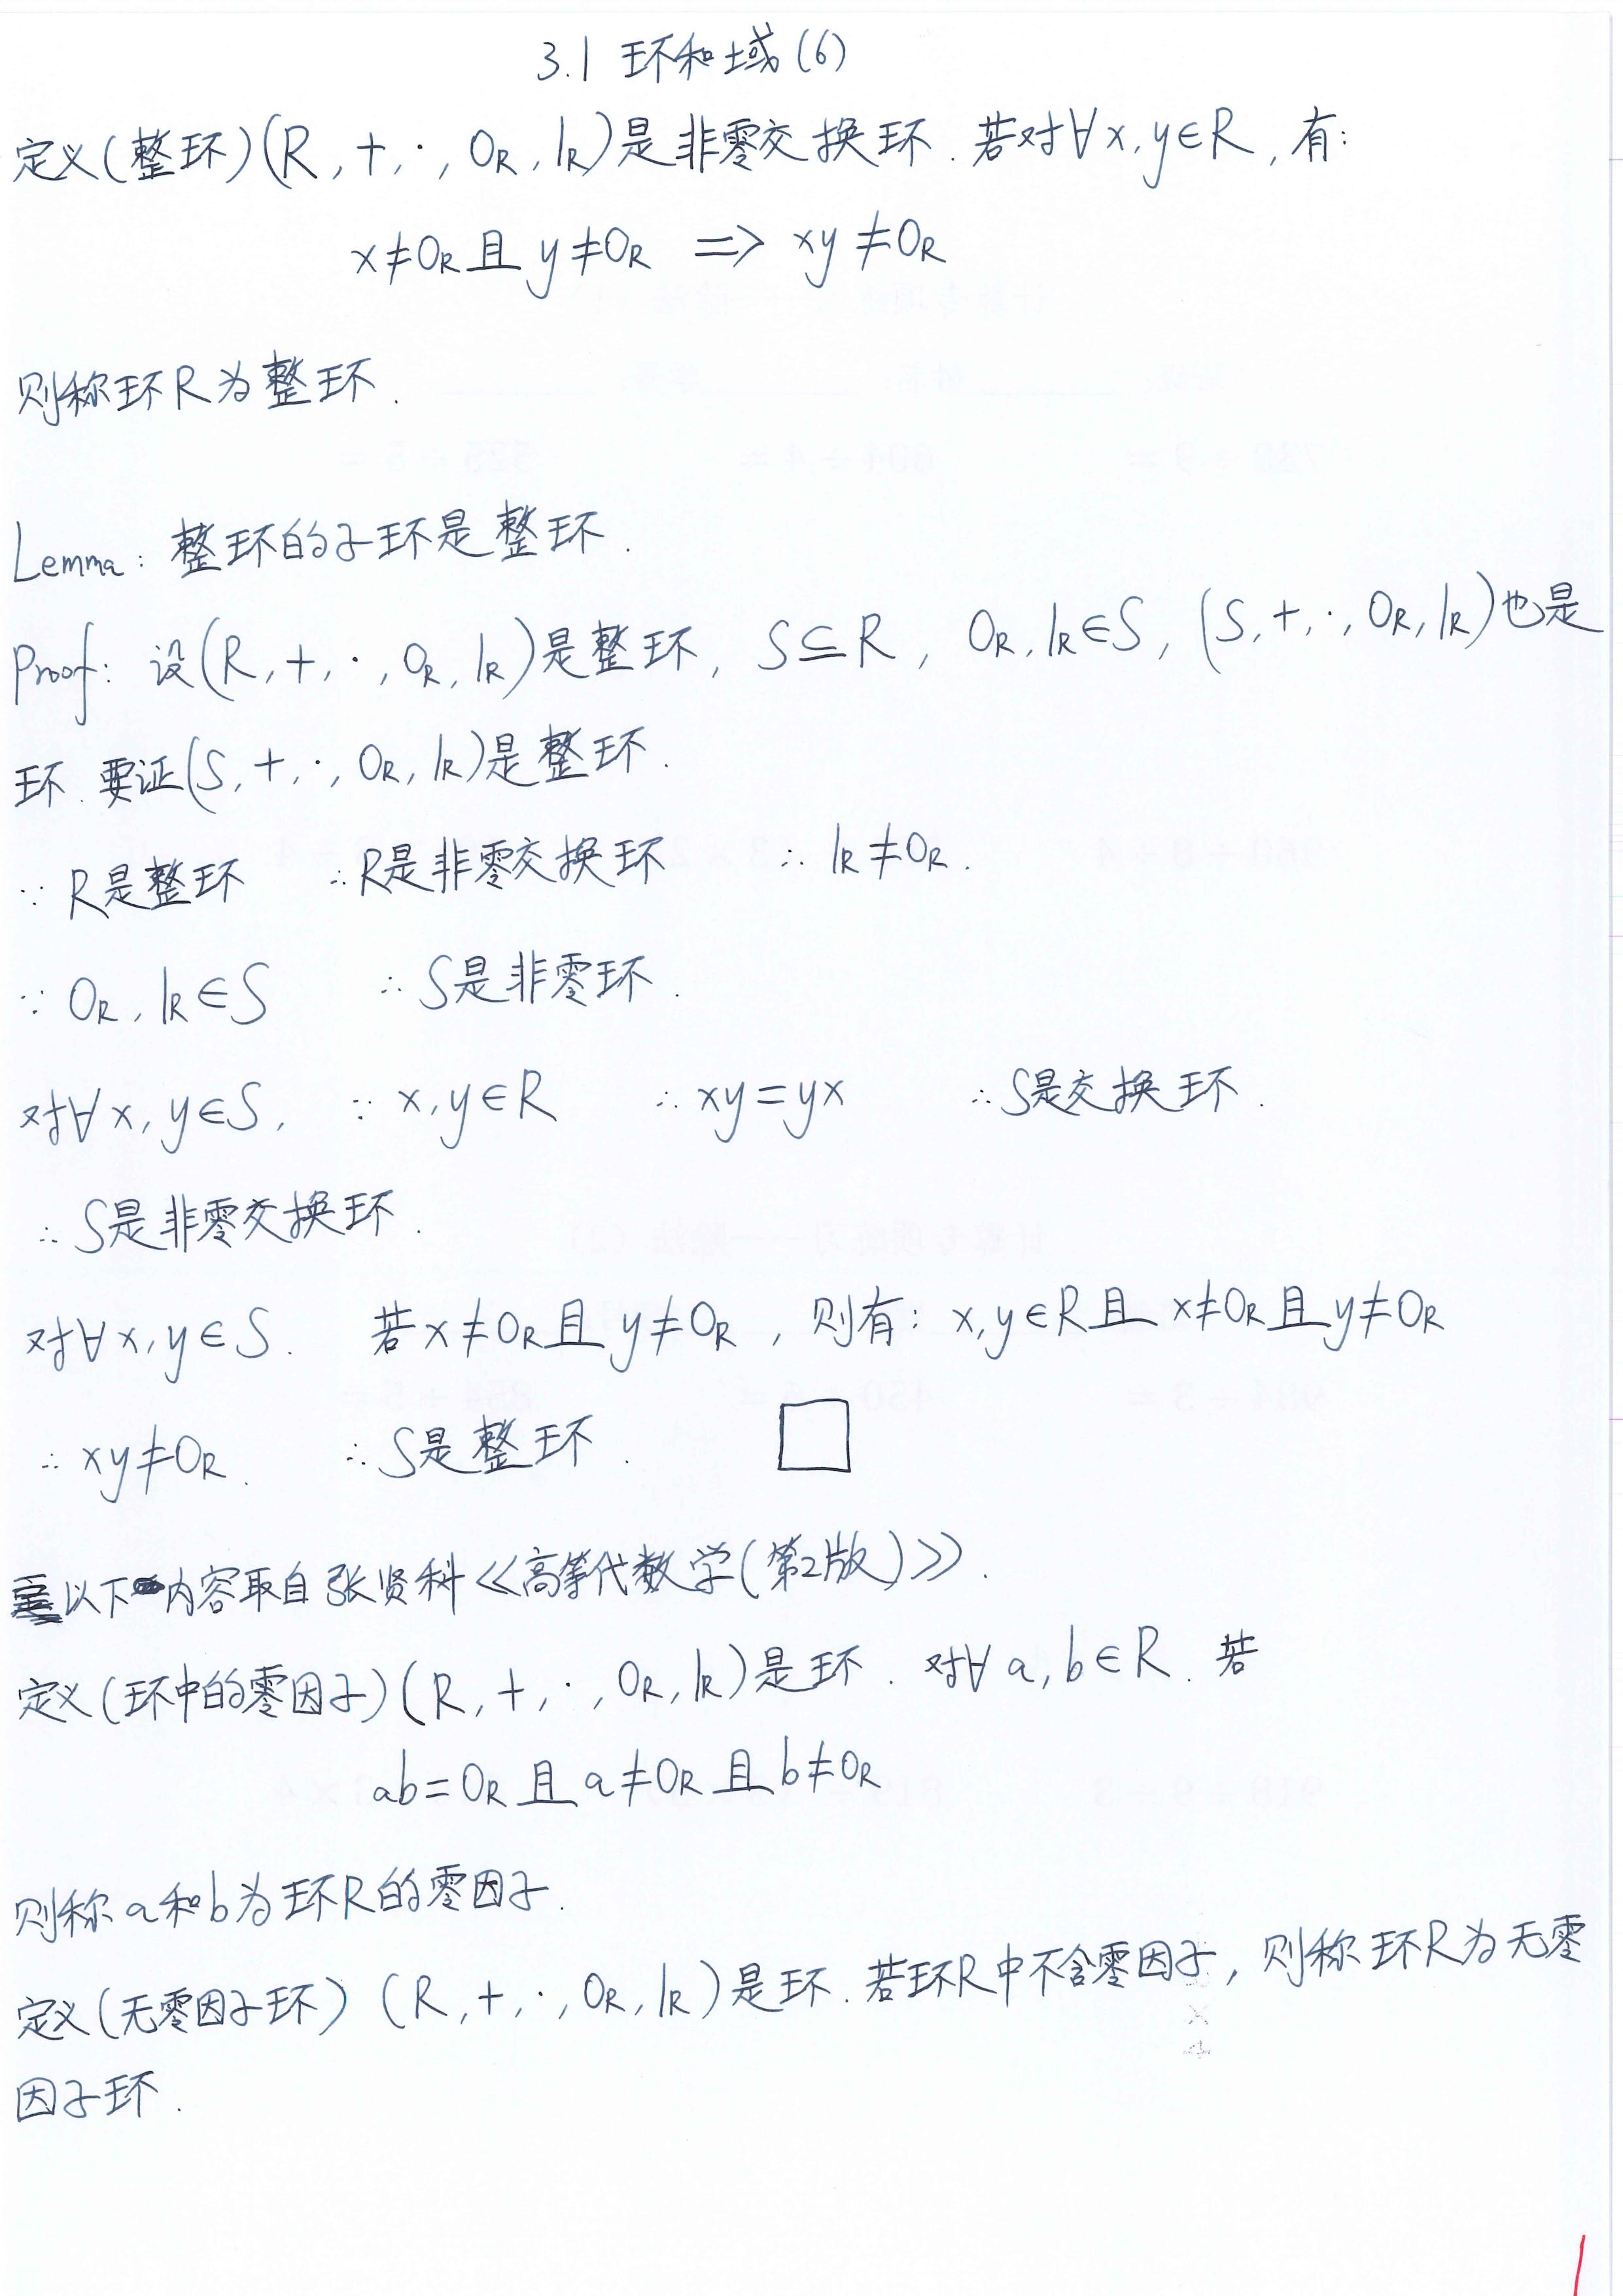 3.1 环和域(6)
定义(整环)(R,+,·,0_R,1_R)是非零交换环.若对∀x,y∈R,有:
x≠0_R且y≠0_R => xy≠0_R
则称环R为整环.
Lemma: 整环的子环是整环.
Proof: 设(R,+,·,0_R,1_R)是整环, S⊆R, 0_R,1_R∈S, (S,+,·,0_R,1_R)也是
环.要证(S,+,·,0_R,1_R)是整环.
∵R是整环 ∴R是非零交换环 ∴1_R≠0_R.
∵0_R,1_R∈S ∴S是非零环.
对∀x,y∈S, ∵x,y∈R ∴xy=yx ∴S是交换环.
∴S是非零交换环.
对∀x,y∈S. 若x≠0_R且y≠0_R, 则有: x,y∈R且x≠0_R且y≠0_R
∴xy≠0_R. ∴S是整环. □
以下内容取自张贤科《高等代数学(第2版)》.
定义(环中的零因子)(R,+,·,0_R,1_R)是环.对∀a,b∈R.若
ab=0_R且a≠0_R且b≠0_R
则称a和b为环R的零因子.
定义(无零因子环)(R,+,·,0_R,1_R)是环.若环R中不含零因子,则称环R为无零
因子环.